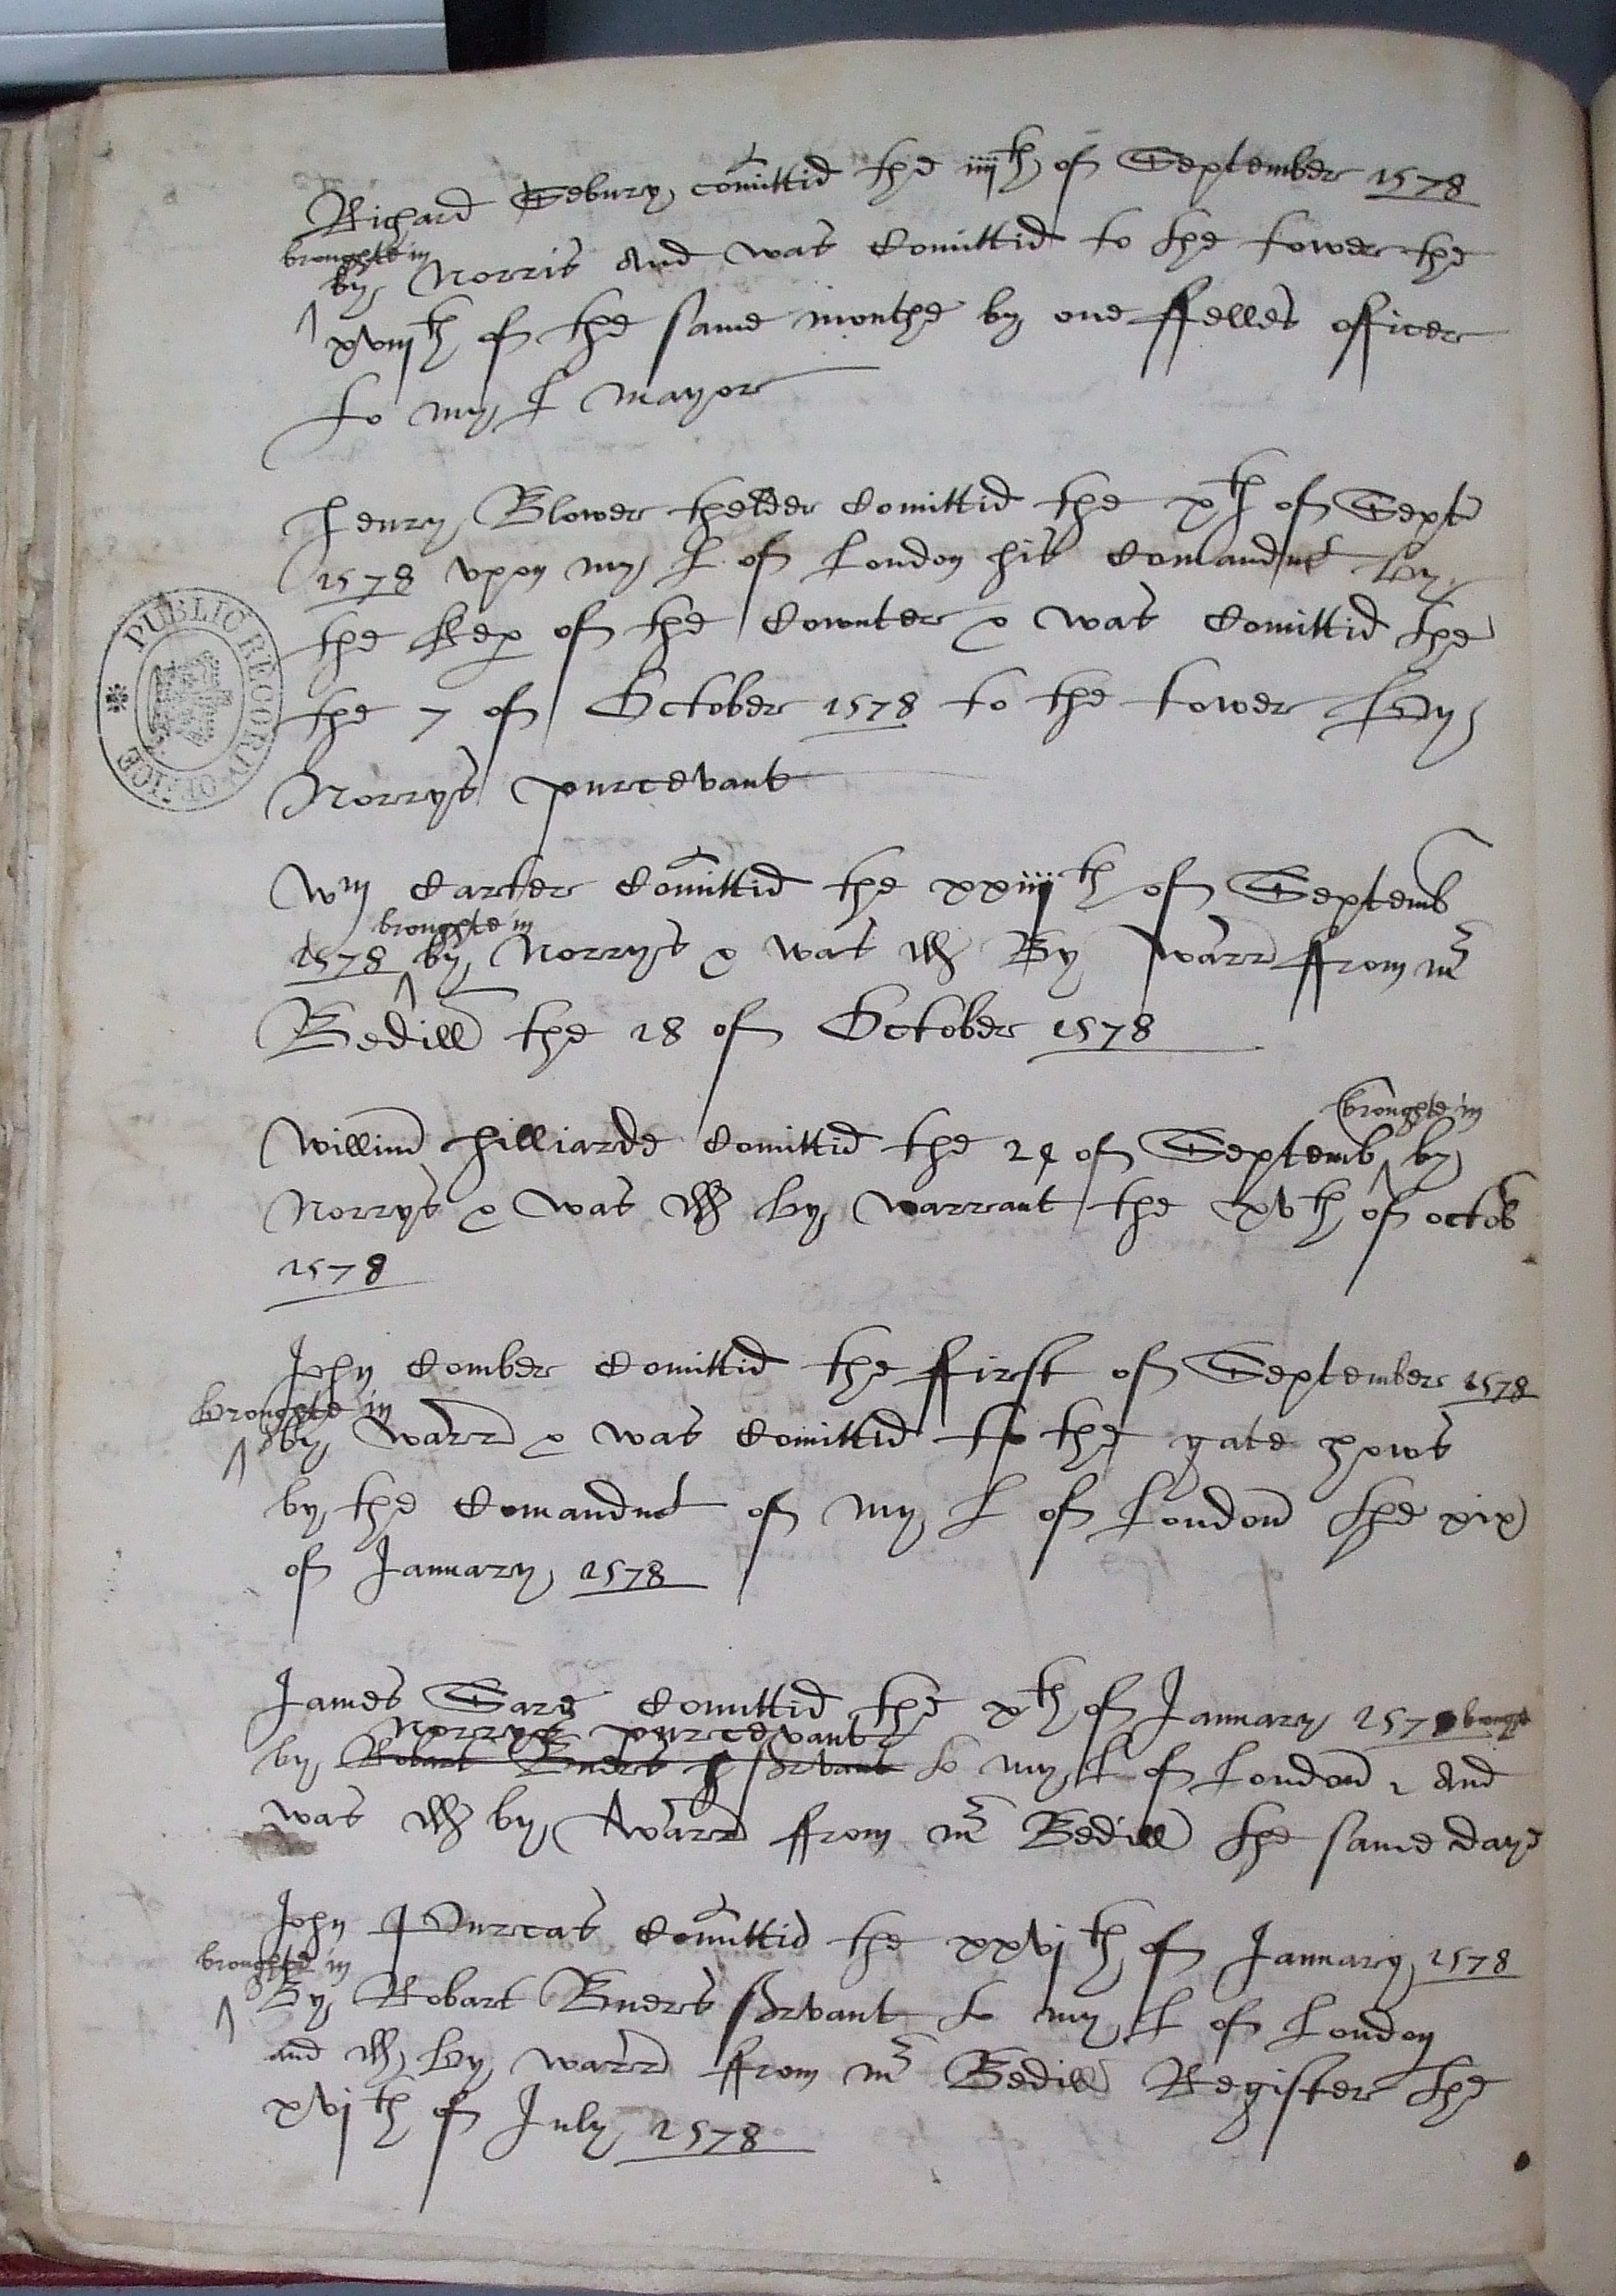 Richard Sebury comittid the iiijth of September 1578
broughte in
by Norris And was Comittid to the tower the
xviijth of the same monthe by one ffelles officer
to my L mayor
Henry Blower thelder Comittid the xth of Sept
1578 vpon my L of London his Comandmt by
the Kep of the Counter & was Comittid the
the 7 of October 1578 to the tower by
Norrys purcevant
PUBLIC RECORD OFFICE
Wm Carter Comittid the xxiiijth of Septemb
broughte in
1578 by Norrys & was By warr ffrom mr
Bedill the 28 of October 1578
broughte in
Willim Hilliarde Comittid the 24 of Septemb by
Norrys & was by warrant the xvth of octob
1578
John Comber Comittid the ffirst of September 1578
broughte in
by warr & was Comittid to the gate hows
by the Comandmt of my L of London the xix
of January 1578
James Gare Comittid the xth of January 1578
Norrys purcevant
by Robart servant to my L of London And
was by warr ffrom mr Bedill the same daye
John Comittid the xxvith of January 1578
broughte in
By Robart servant to my L of London
and by warr ffrom mr Bedill Register the
xvith of July 1578